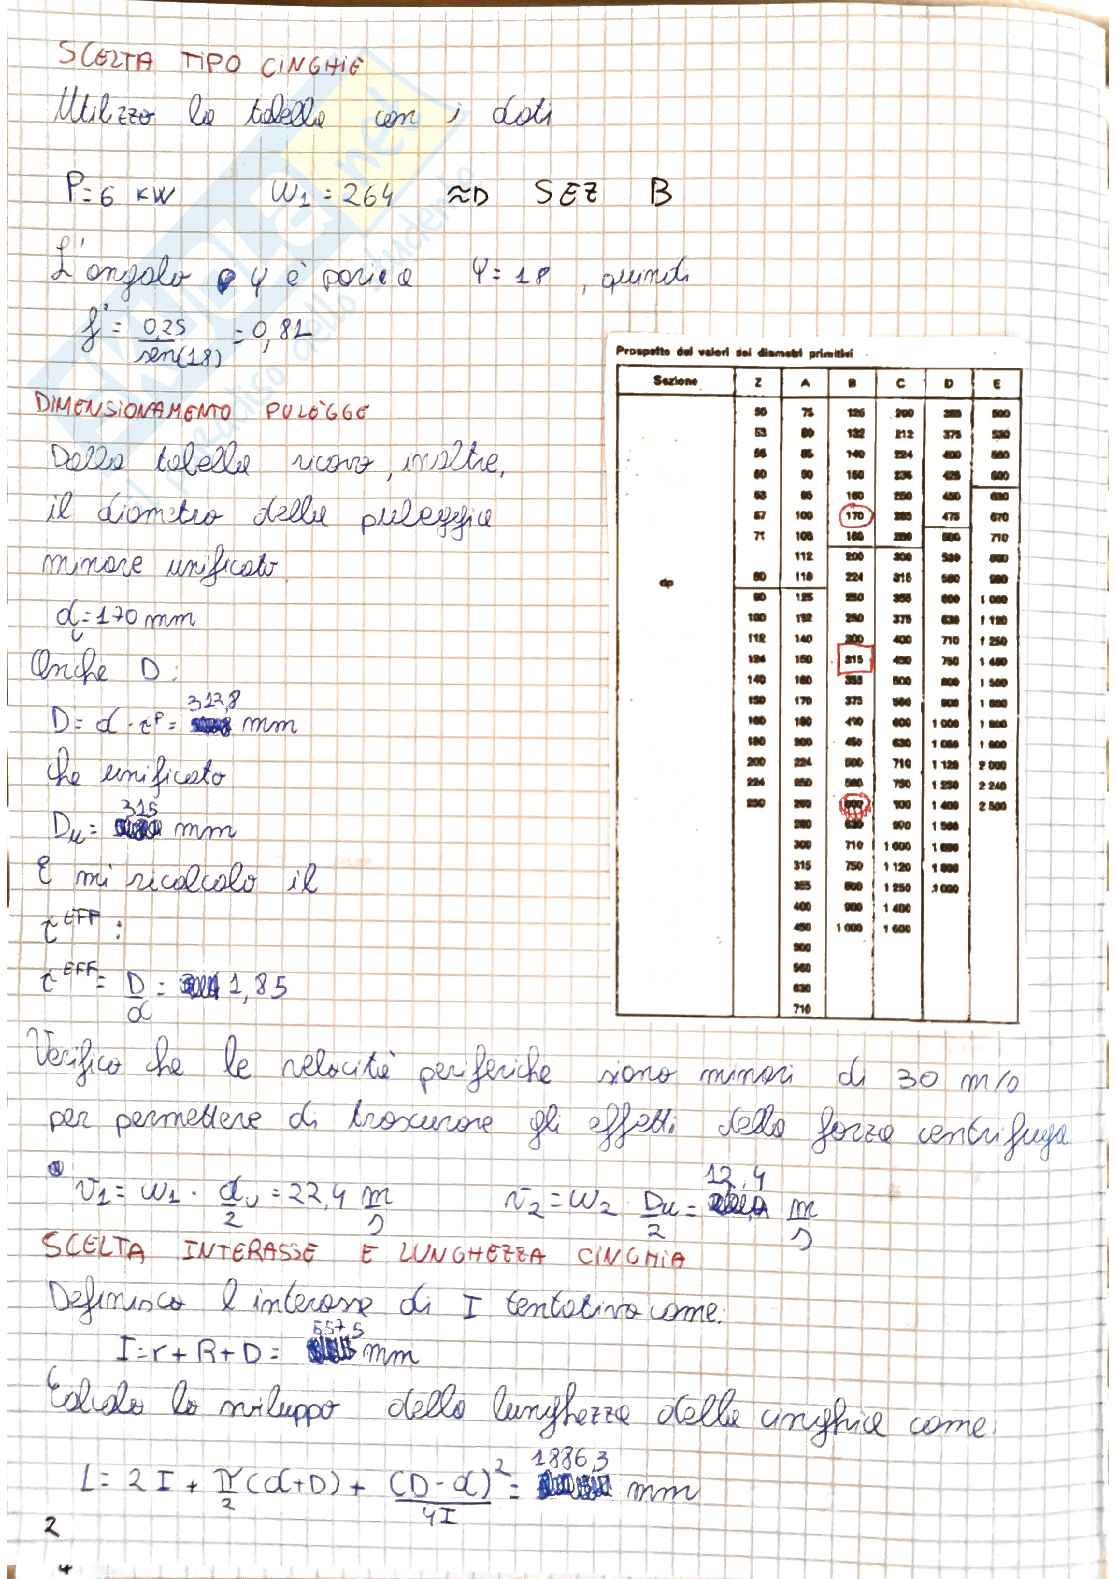 SCELTA TIPO CINGHIE
Utilizzo la tabella con i dati
P=6 KW W1=264 ≈D SEZ B
L'angolo φ è pari a φ=18, quindi
f'= 0,25/sen(18) =0,81
DIMENSIONAMENTO PULEGGE
Dalla tabella ricavo, inoltre,
il diametro della puleggia
minore unificato
du=170 mm
Anche D:
D= d · τᴾ= 312,8 mm
che unificato
Du= 315 mm
E mi ricalcolo il
τ EFF :
τ EFF= D/d = 1,85
Prospetto dei valori dei diametri primitivi
Sezione Z A B C D E
dp
50 75 125 200 355 500
53 80 132 212 375 530
56 85 140 224 400 560
60 90 150 236 425 600
63 95 160 250 450 630
67 100 170 265 475 670
71 106 180 280 500 710
112 200 300 530 800
80 118 224 315 560 900
90 125 250 355 600 1 000
100 132 280 375 630 1 120
112 140 300 400 710 1 250
124 150 315 450 750 1 400
140 160 355 500 800 1 500
150 170 375 560 900 1 600
160 180 400 600 1 000 1 800
180 200 450 630 1 060 1 900
200 224 500 710 1 120 2 000
224 250 560 750 1 250 2 240
250 260 600 900 1 400 2 500
280 630 900 1 500
300 710 1 000 1 600
315 750 1 120 1 800
355 800 1 250 2 000
400 900 1 400
450 1 000 1 600
500
560
630
710
Verifico che le velocità periferiche siano minori di 30 m/s
per permettere di trascurare gli effetti della forza centrifuga
v1= w1 · du/2 =22,4 m/s v2=w2 Du/2 = 12,4 m/s
SCELTA INTERASSE E LUNGHEZZA CINGHIA
Definisco l'interasse di I tentativo come:
I=r+R+D= 557,5 mm
Calcolo lo sviluppo della lunghezza della cinghia come:
L= 2 I + π/2 (d+D) + (D-d)²/4I = 1886,3 mm
2